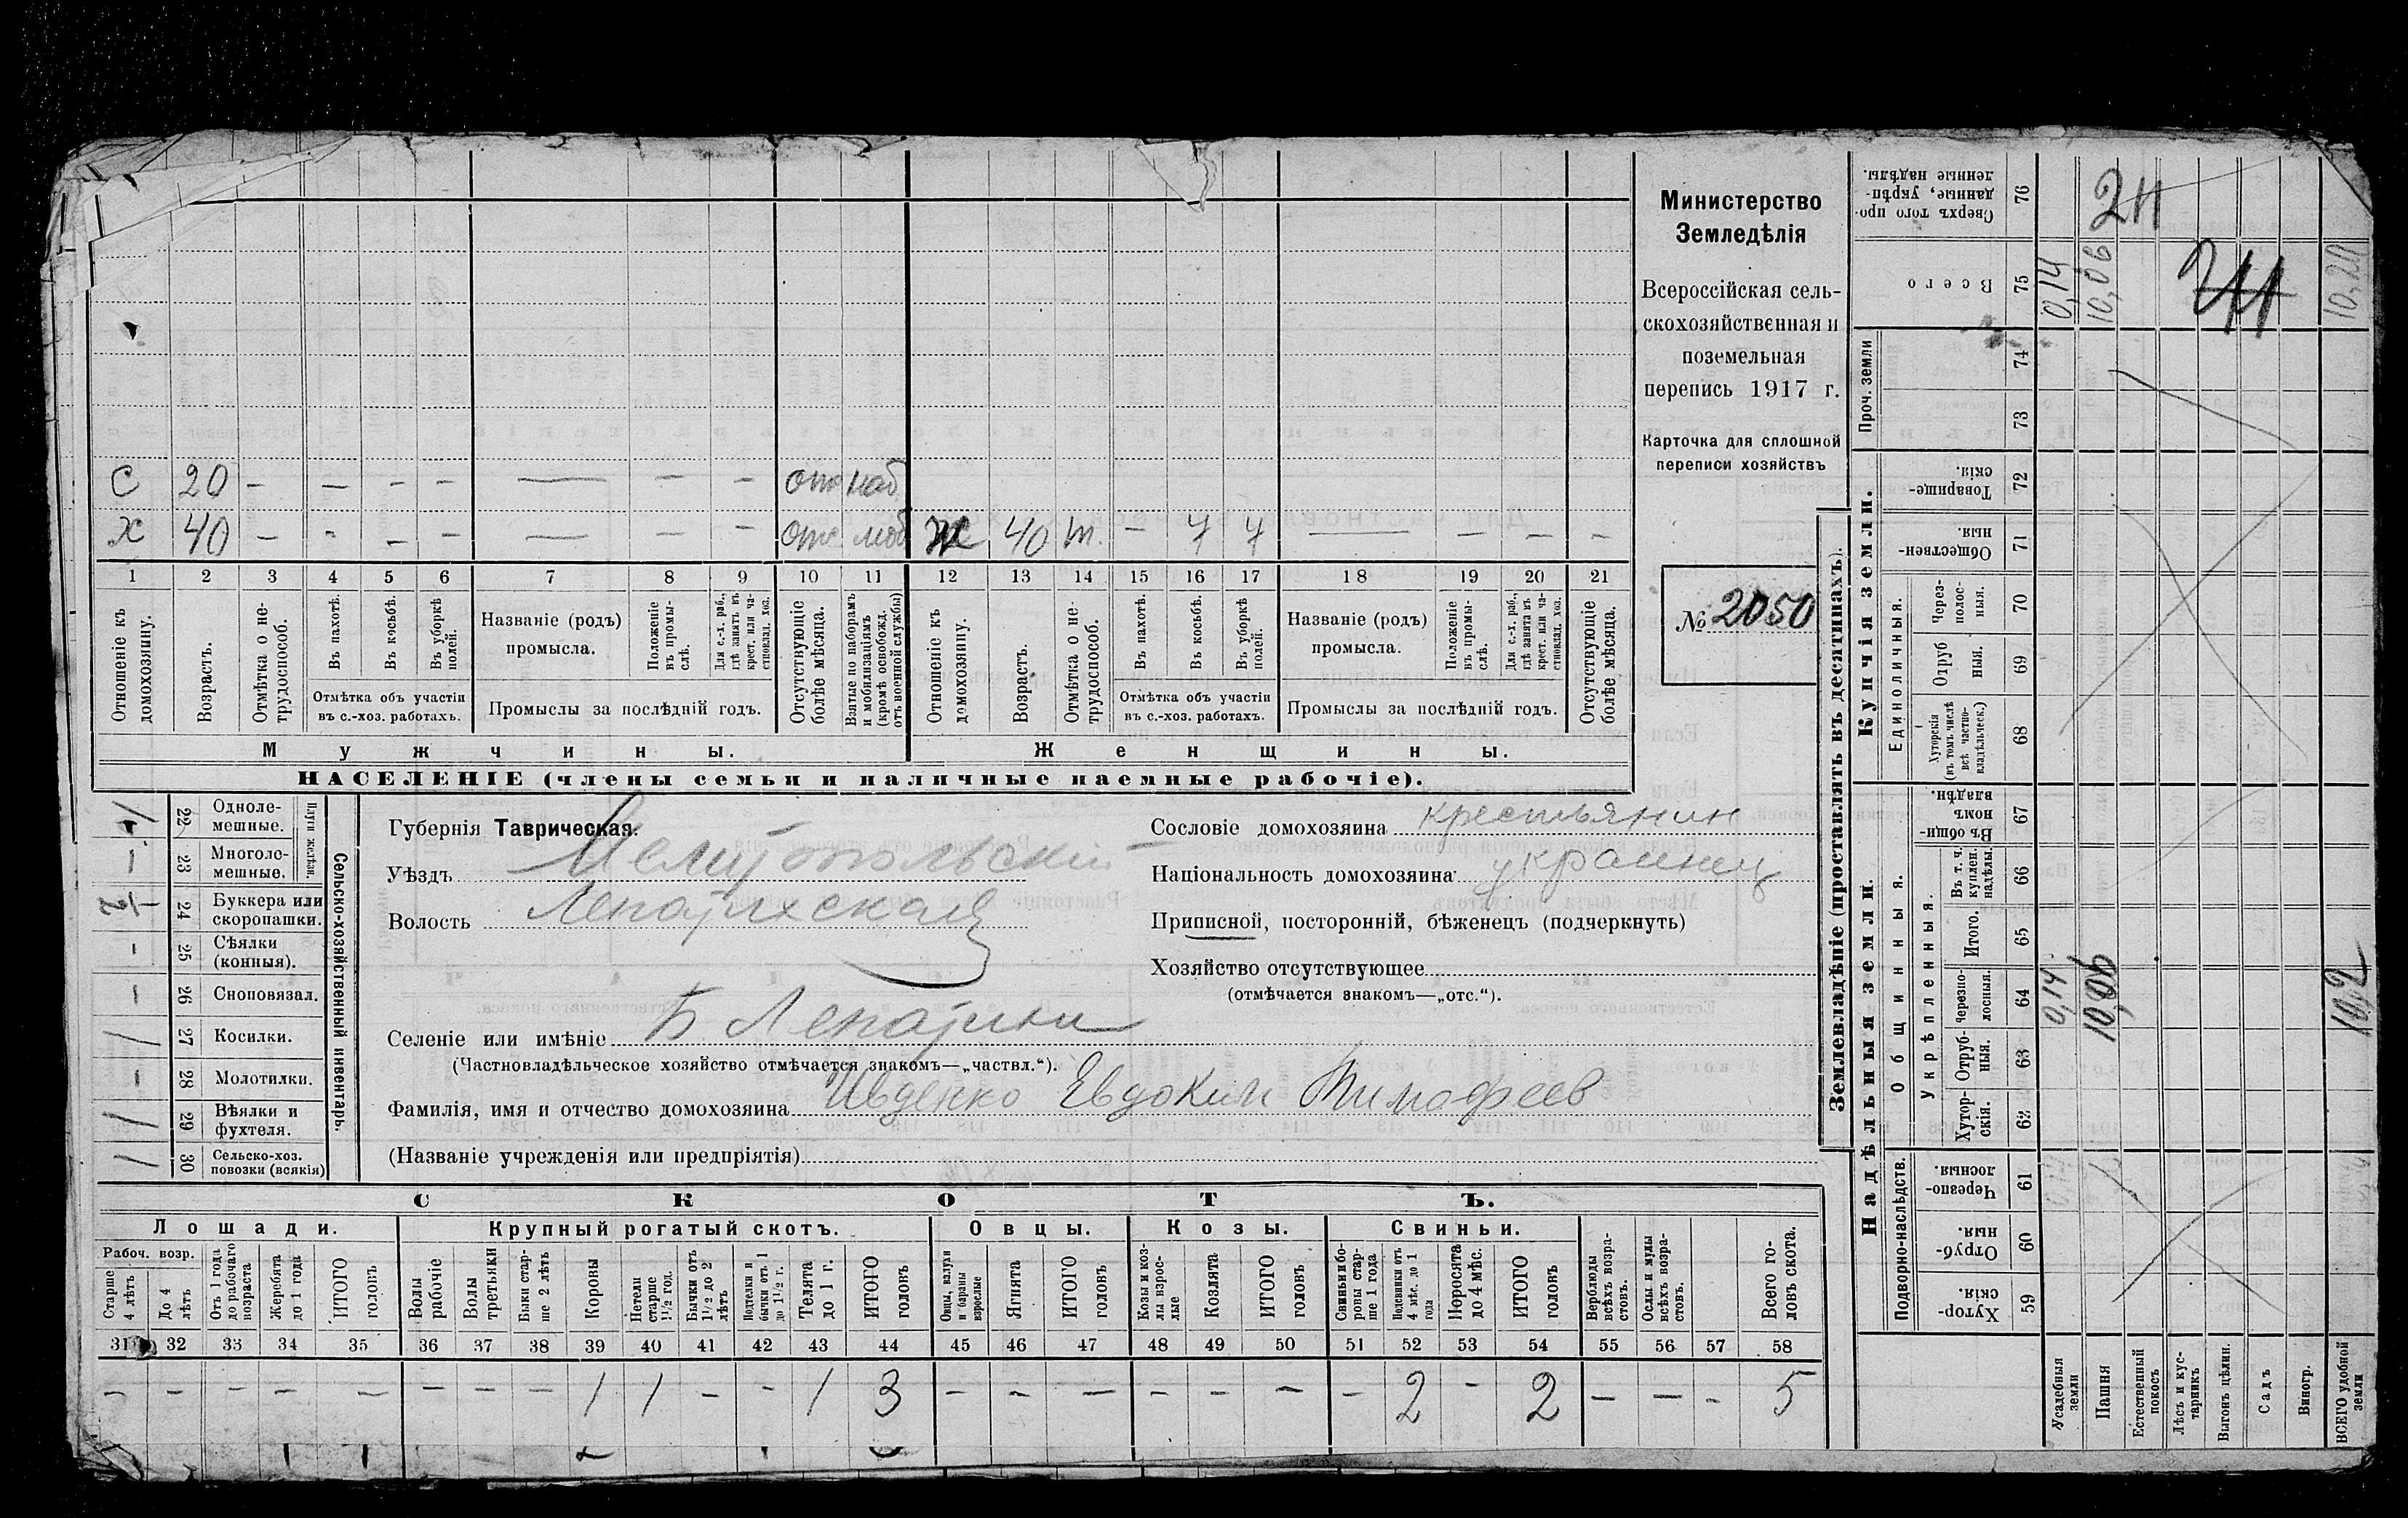 Министерство
Земледѣлія
Всероссійская сель-
скохозяйственная и
поземельная
перепись 1917 г.
Карточка для сплошной
переписи хозяйствъ
№ 2050
С 20 — — — — — — — отс
Х 40 — — — — — — — отс моб Ж 40 т. — 7 7 — — — —
1 2 3 4 5 6 7 8 9 10 11 12 13 14 15 16 17 18 19 20 21
Отношеніе къ домохозяину.
Возрастъ.
Отмѣтка о не-трудоспособ.
Въ пахотѣ.
Въ косьбѣ.
Въ уборкѣ полей.
Отмѣтка объ участіи
въ с.-хоз. работахъ.
Названіе (родъ)
промысла.
Положеніе въ промы-слѣ.
Для с.-х. раб., гдѣ занятъ въ крест. или ча-стновлад. хоз.
Промыслы за послѣдній годъ.
Отсутствующіе болѣе мѣсяца.
Взятые по наборамъ и мобилизаціямъ (кромѣ освобожд. отъ военной службы)
Отношеніе къ домохозяину.
Возрастъ.
Отмѣтка о не-трудоспособ.
Въ пахотѣ.
Въ косьбѣ.
Въ уборкѣ полей.
Отмѣтка объ участіи
въ с.-хоз. работахъ.
Названіе (родъ)
промысла.
Положеніе въ промы-слѣ.
Для с.-х. раб., гдѣ занята въ крест. или ча-стновлад. хоз.
Промыслы за послѣдній годъ.
Отсутствующіе болѣе мѣсяца.
Мужчины. Женщины.
НАСЕЛЕНІЕ (члены семьи и наличные наемные рабочіе).
Сельско-хозяйственный инвентарь.
Плуги желѣзн.
22 Одноле-мешные.
— 23 Многоле-мешные.
24 Буккера или скоропашки.
— 25 Сѣялки (конныя).
— 26 Сноповязал.
/ 27 Косилки.
— 28 Молотилки.
/ 29 Вѣялки и фухтеля.
/ 30 Сельско-хоз. повозки (всякія)
Губернія Таврическая.
Уѣздъ Мелитопольскій
Волость Лепатихская
Селеніе или имѣніе Б Лепатихи
(Частновладѣльческое хозяйство отмѣчается знакомъ—„частвл.“).
Фамилія, имя и отчество домохозяина Ивденко Евдоким Тимофеев
(Названіе учрежденія или предпріятія)
Сословіе домохозяина крестьянин
Національность домохозяина украинец
Приписной, посторонній, бѣженецъ (подчеркнуть)
Хозяйство отсутствующее
(отмѣчается знакомъ—„отс.“).
СКОТЪ.
Лошади. Крупный рогатый скотъ. Овцы. Козы. Свиньи.
Рабоч. возр.
Старше 4 лѣтъ
До 4 лѣтъ
Отъ 1 года до рабочаго возраста
Жеребята до 1 года
ИТОГО головъ
Волы рабочіе
Волы третьяки
Быки стар-ше 2 лѣтъ
Коровы
Нетели старше 1½ год.
Бычки отъ 1½ до 2 лѣтъ
Подтелки и бычки отъ 1 до 1½ г.
Телята до 1 г.
ИТОГО головъ
Овцы, валухи и бараны взрослые
Ягнята
ИТОГО головъ
Козы и коз-лы взрос-лые
Козлята
ИТОГО головъ
Свиньи и бо-ровы стар-ше 1 года
Подсвинки отъ 4 мѣс. до 1 года
Поросята до 4 мѣс.
ИТОГО головъ
Верблюды всѣхъ возра-стовъ.
Ослы и мулы всѣхъ возра-стовъ.
Всего го-ловъ скота.
31 32 33 34 35 36 37 38 39 40 41 42 43 44 45 46 47 48 49 50 51 52 53 54 55 56 57 58
— — — — — — — — 1 1 — — 1 3 — — — — — — — 2 — 2 — — — 5
Землевладѣніе (проставлять въ десятинахъ).
Надѣльныя земли. Купчія земли.
Подворно-наслѣдств.
Общинныя.
Укрѣпленныя.
Единоличныя.
Проч. земли
Сверхъ того про-данные, укрѣп-ленные надѣлы. 76
Всего 75 0,14 10,06
74
73
Товарище-скія. 72
Обществен-ныя. 71
Через-полос-ныя. 70
Отруб-ныя. 69
Хуторскія (въ томъ числѣ всѣ частно-владѣльческ.) 68
Въ общи-номъ владѣн. 67
Въ т. ч. куплен. надѣлы. 66
Итого. 65
Черезпо-лосныя. 64 0,14 10,06 10,2
Отруб-ныя. 63
Хутор-скія. 62
Черезпо-лосныя. 61
Отруб-ныя. 60
Хутор-скія. 59
Усадебныя земли
Пашня
Естественный покосъ
Лѣсъ и кус-тарникъ
Выгонъ цѣлин.
Садъ
Виногр.
ВСЕГО удобной земли